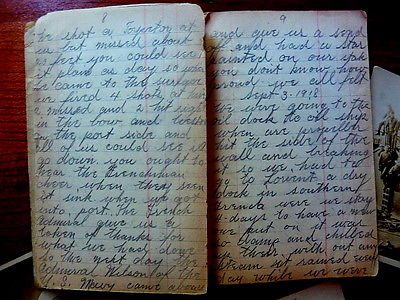 8
he shot a Torpedo at
us but missed about
feet you could see
it plain as day so when
he came to the surface
we fired 4 shots at him
2 missed and 2 hit was
in the bow and
the port side and
all of us could see it
go down you ought to
hear the Frenchman
cheer when they seen
it sink when we got
into port the French
Admiral give us a
token of thanks for
what we had done
so the next day the
Admiral Wilson of the
U. S. Navy came aboard
9
and give us a send
off and had a star
painted on our stack
you dont know how
proud we all felt
Sept 3. 1918
We were going to the
oil dock to oil ships
when our propeller
hit the side of the
wall and breaking
it so we had to
go to Lorient a dry
dock in southern
France were we stay
4 days to have a new
one put on it was
so damp and chilled
up there with out any
steam it rained every
day while we were